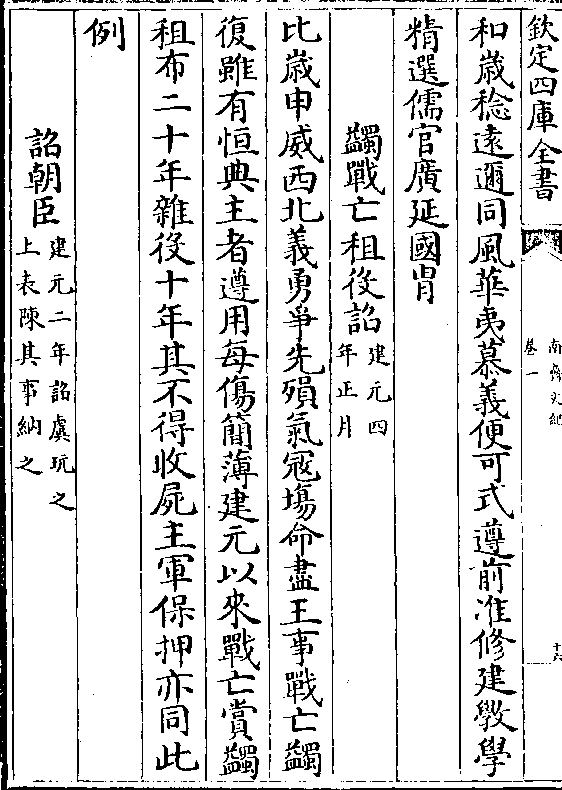 欽定四庫全書
南齊文紀
卷一
十六
和歲稔遠邇同風華夷慕義便可式遵前准修建敎學
精選儒官廣延國胄
蠲戰亡租役詔建元四
年正月
比嵗申威西北義勇爭先殞氣寇塲命盡王事戰亡蠲
復雖有恒典主者遵用每傷簡薄建元以來戰亡賞蠲
租布二十年雜役十年其不得收屍主軍保押亦同此
例
詔朝臣建元二年詔虞玩之
上表陳其事納之